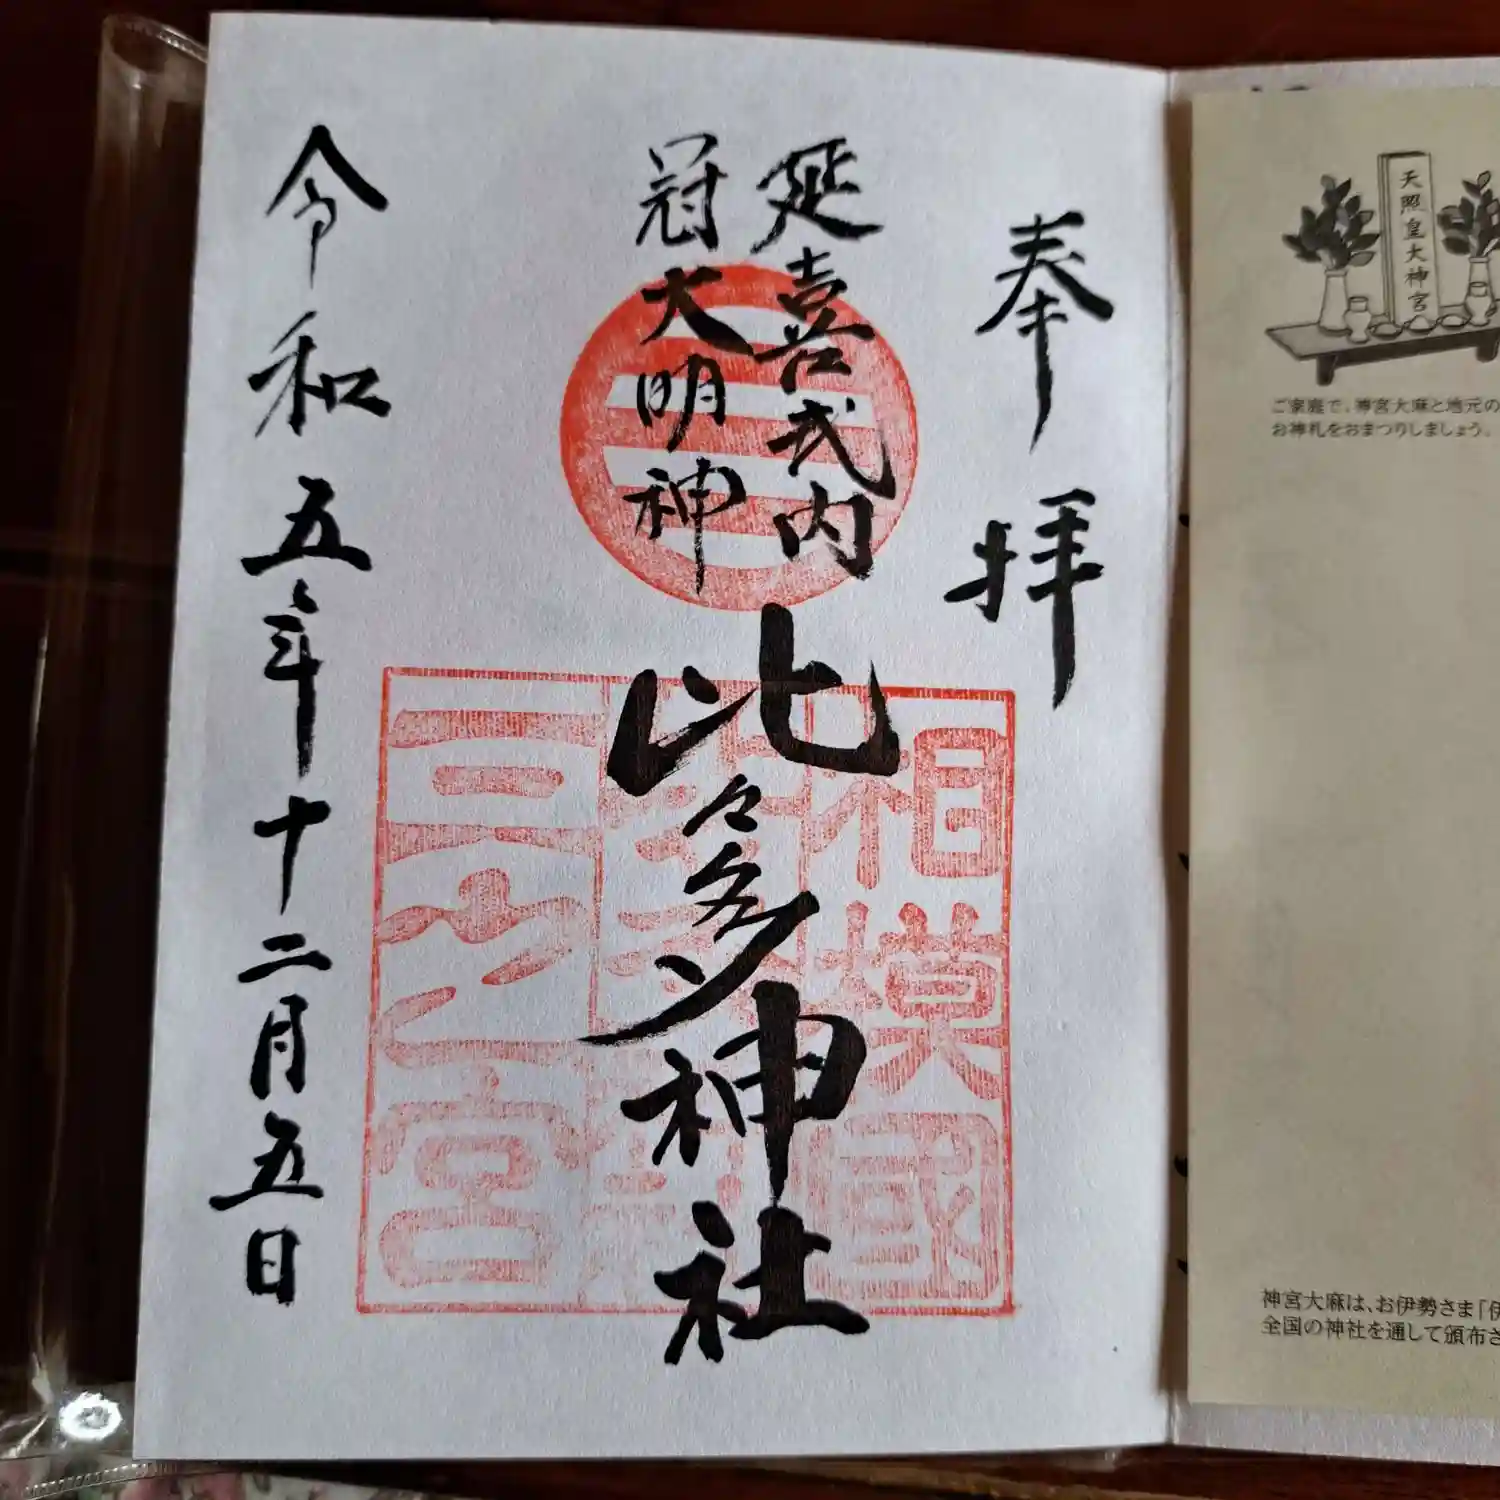 奉拝
延喜式内
冠大明神
比々多神社
令和五年十二月五日
相模國
三之宮
天照皇大神宮
ご家庭で、神宮大麻と地元の
お神札をおまつりしましょう。
神宮大麻は、お伊勢さま「伊
全国の神社を通して頒布さ